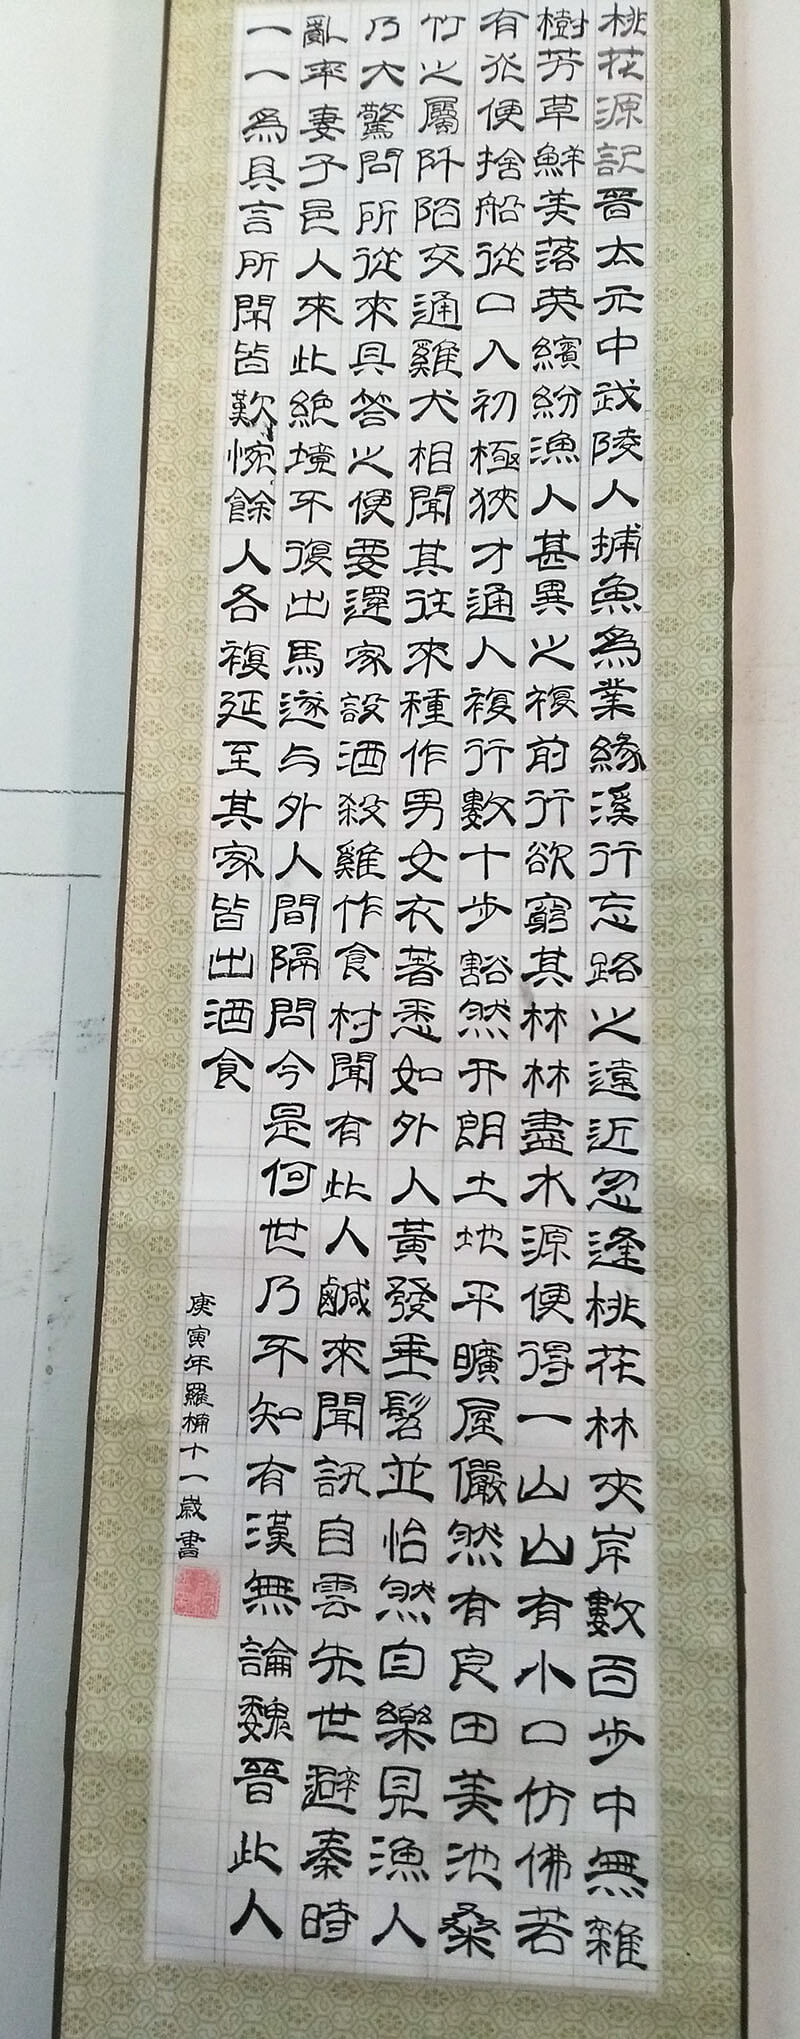 桃花源記晉太元中武陵人捕魚爲業緣溪行忘路之遠近忽逢桃花林夾岸數百步中無雜
樹芳草鮮美落英繽紛漁人甚異之複前行欲窮其林林盡水源便得一山山有小口仿佛若
有光便捨船從口入初極狹才通人複行數十步豁然开朗土地平曠屋儼然有良田美池桑
竹之屬阡陌交通雞犬相聞其往來種作男女衣著悉如外人黃發垂髫並怡然自樂見漁人
乃大驚問所從來具答之便要還家設酒殺雞作食村聞有此人鹹來聞訊自雲先世避秦時
亂率妻子邑人來此絕境不復出焉遂与外人間隔問今是何世乃不知有漢無論魏晉此人
一一爲具言所聞皆歎惋餘人各複延至其家皆出酒食
庚寅年羅楠十一歲書